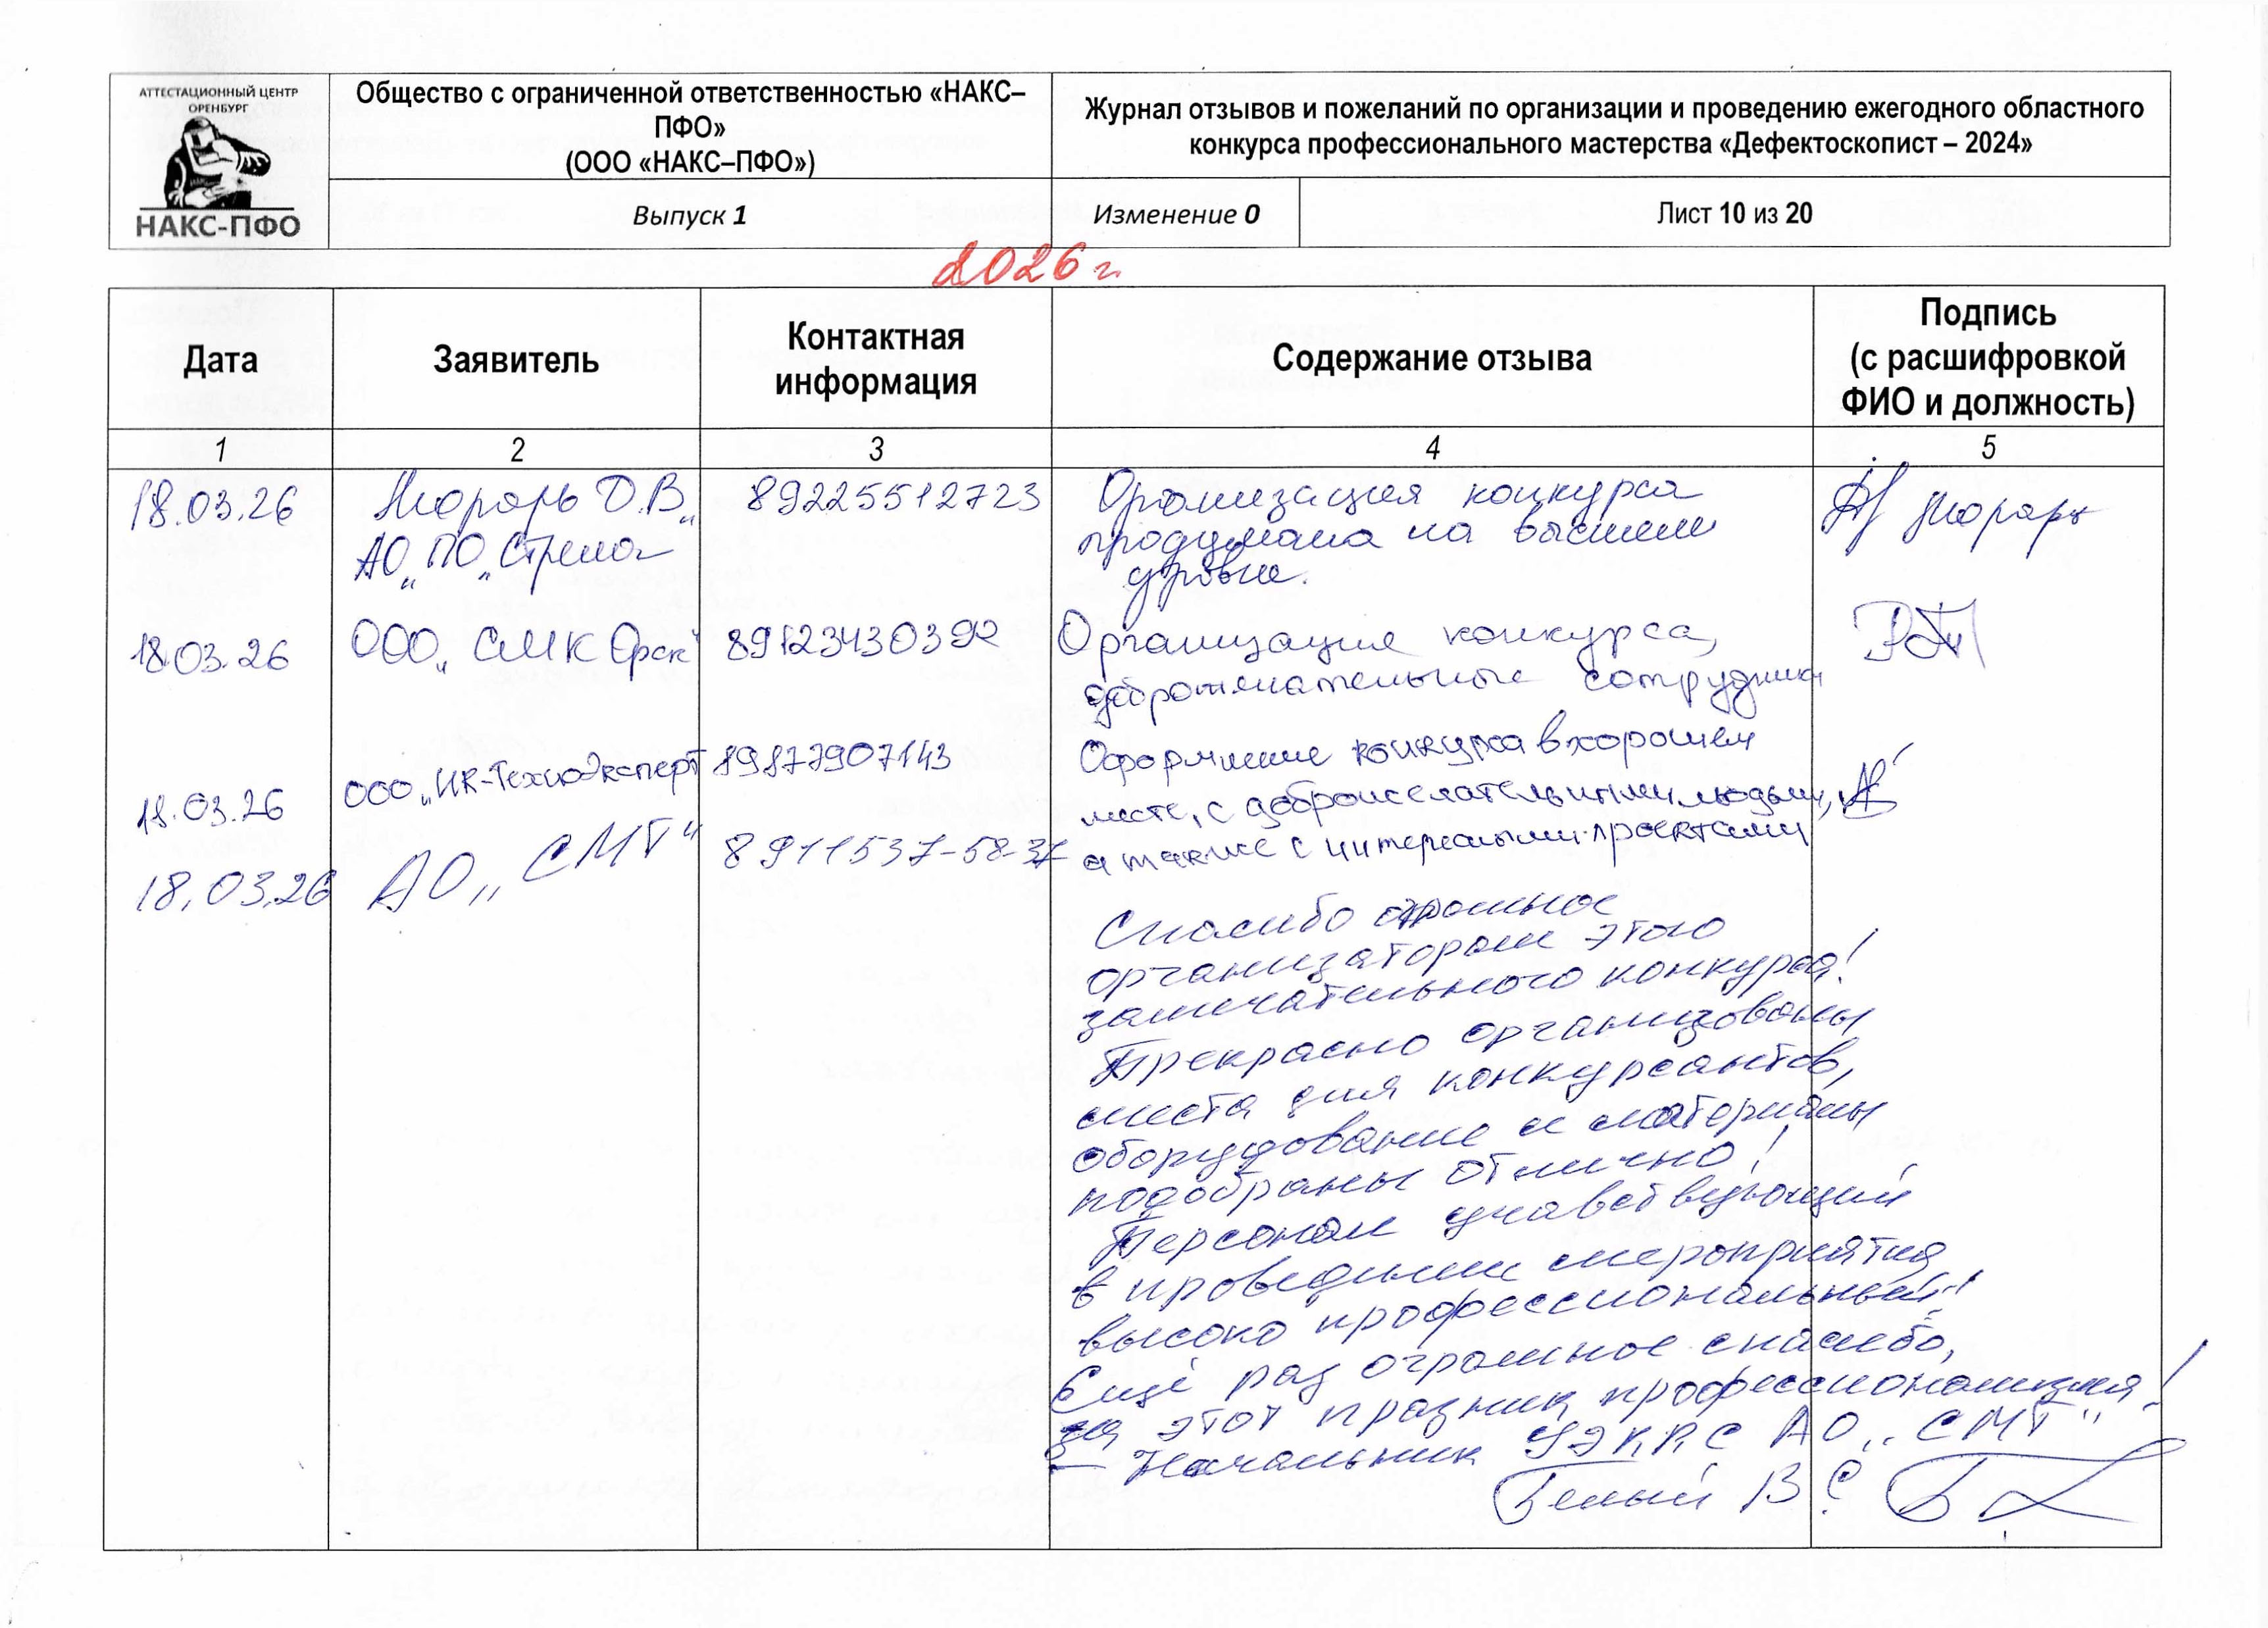 АТТЕСТАЦИОННЫЙ ЦЕНТР
ОРЕНБУРГ
НАКС-ПФО
Общество с ограниченной ответственностью «НАКС–
ПФО»
(ООО «НАКС–ПФО»)
Журнал отзывов и пожеланий по организации и проведению ежегодного областного
конкурса профессионального мастерства «Дефектоскопист – 2024»
Выпуск 1
Изменение 0
Лист 10 из 20
2026 г.
Дата
Заявитель
Контактная
информация
Содержание отзыва
Подпись
(с расшифровкой
ФИО и должность)
1
2
3
4
5
18.03.26
Мюрарь О.В.
АО „ПО „Стрела"
89225512723
Организация конкурса
продумана на высшем
уровне.
Мюрарь
18.03.26
ООО „СМК Орск"
89123430392
Организация конкурса,
доброжелательные сотрудники
18.03.26
ООО „ИК-ТехноЭксперт
89877907143
Оформление конкурса в хорошем
месте, с доброжелательными людьми,
а также с интересными проектами
18.03.26
АО „СМТ"
8911537-58-37
Спасибо огромное
организаторам этого
замечательного конкурса!
Прекрасно организованы
места для конкурсантов,
оборудование и материалы
подобраны отлично!
Персонал учавствующий
в проведении мероприятия
высоко профессиональный!
Ещё раз огромное спасибо,
за этот празник профессионализма!
Начальник УЭКРС АО „СМТ"
Белый В С